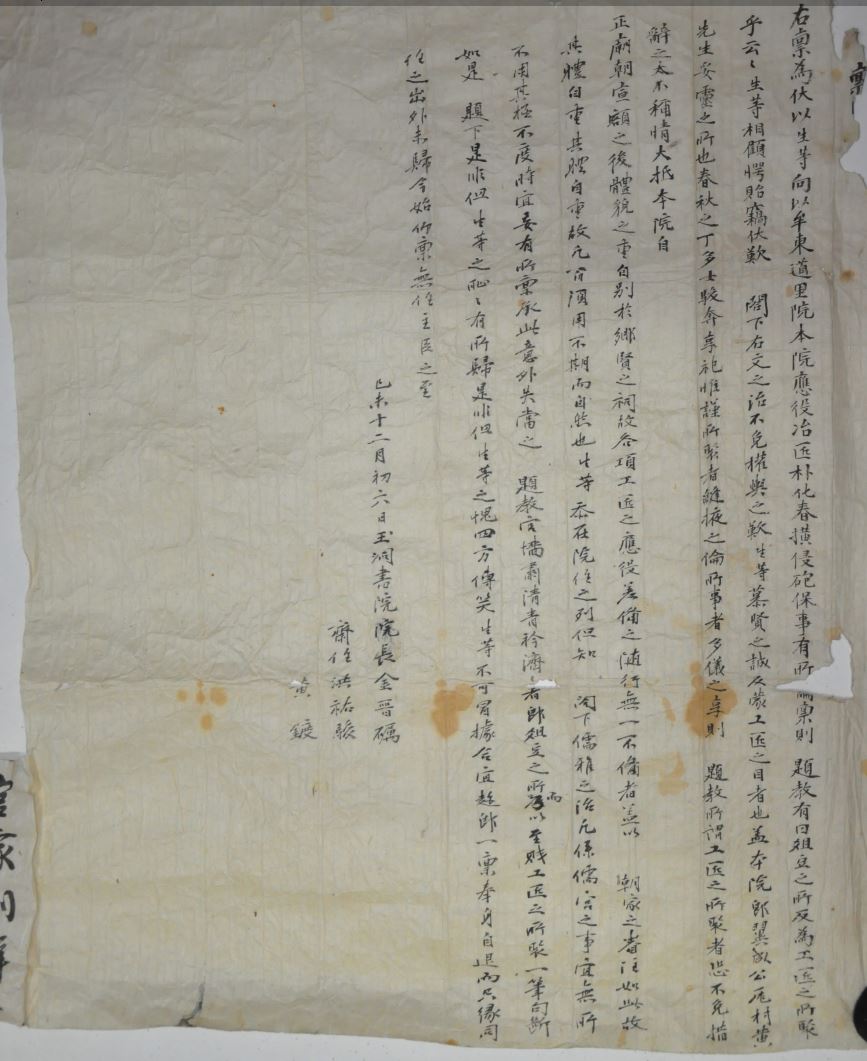 稟
右稟爲伏以生等向以牟東道里院本院應役冶匠朴化春橫侵砲保事有所稟則 題敎有曰俎豆之所反爲工匠之所聚
乎云云生等相顧愕貽竊伏歎 閤下右文之治不免權輿之歎生等慕賢之誠反蒙工匠之目者也盖本院卽翼成公厖村黃
先生妥靈之所也春秋之丁多士駿奔享祀惟謹所聚者縫掖之倫所事者多儀之享則 題敎所謂工匠之所聚者恐不免措
辭之太不稱情大抵本院自
正廟朝宣額之後體貌之重自別於鄕賢之祠故各項工匠之應役差備之隨行無一不備者盖以 朝家之眷注如此故
其體自重其體自重故凡百須用不期而自然也生等忝在院任之列但知 閤下儒雅之治凡係儒宮之事宜無所
不用其極不度時宜妄有所稟承此意外失當之 題敎宮墻肅淸靑衿濟 者卽俎豆之所而以至賤工匠之所聚一筆句斷
如是 題下是非但生等之恥恥有所歸是非但生等之愧四方傳笑生等不可冒據合宜趁卽一稟奉身自退而只緣同
任之出外未歸今始仰稟無任主臣之至
己未十二月初六日玉洞書院院長金晉礪
齋任洪祐駿
黃 鍍
官家